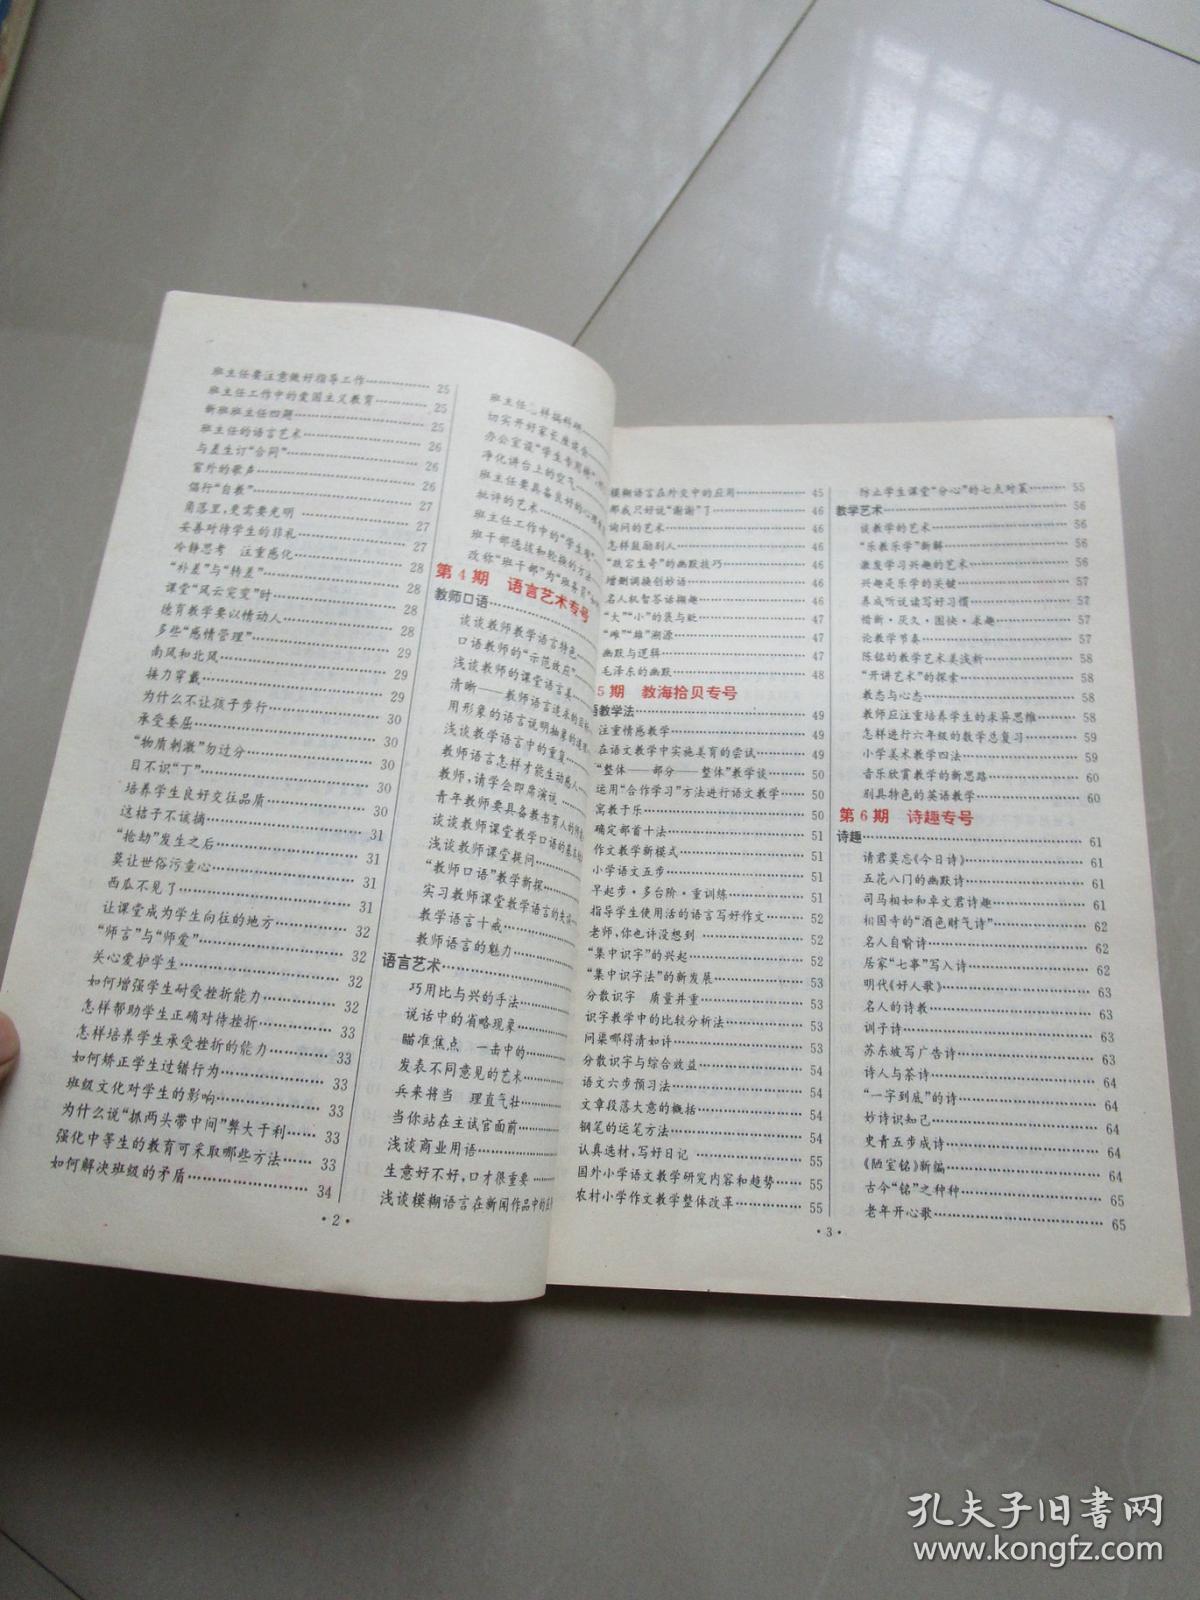 班主任要注意做好指导工作…………25
班主任工作中的爱国主义教育………25
新班班主任四题……………………25
班主任的语言艺术…………………26
与差生订“合同”……………………26
窗外的歌声…………………………26
倡行“自教”…………………………27
角落里,更需要光明…………………27
妥善对待学生的非礼………………27
冷静思考 注重感化…………………28
“补差”与“转差”……………………28
课堂“风云突变”时…………………28
德育教学要以情动人………………28
多些“感情管理”……………………29
南风和北风…………………………29
接力穿戴……………………………29
为什么不让孩子步行………………30
承受委屈……………………………30
“物质刺激”勿过分…………………30
目不识“丁”…………………………30
培养学生良好交往品质……………30
这桔子不该摘………………………31
“抢劫”发生之后……………………31
莫让世俗污童心……………………31
西瓜不见了…………………………31
让课堂成为学生向往的地方………32
“师言”与“师爱”……………………32
关心爱护学生………………………32
如何增强学生耐受挫折能力………32
怎样帮助学生正确对待挫折………33
怎样培养学生承受挫折的能力……33
如何矫正学生过错行为……………33
班级文化对学生的影响……………33
为什么说“抓两头带中间”弊大于利……33
强化中等生的教育可采取哪些方法……33
如何解决班级的矛盾………………34
·2·
切实开好家长座谈会
净化讲台上的空气
批评的艺术
班主任工作中的“学生
班干部选拔和轮换的方法
改称“班干部”为“班务员”
第4期 语言艺术专号
教师口语
谈谈教师教学语言特色
口语教师的“示范效应”
浅谈教师的课堂语言美
清晰——教师语言
用形象的语言说明抽象的道理
浅谈教学语言中的重复
教师语言怎样才能生动感人
教师,请学会即席演说
青年教师要具备教书育人的
谈谈教师课堂教学口语的基本
浅谈教师课堂提问
“教师口语”教学新探
实习教师课堂教学语言的失误
教学语言十戒
教师语言的魅力
语言艺术
巧用比与兴的手法
说话中的省略现象
瞄准焦点 一击中的
发表不同意见的艺术
兵来将当 理直气壮
当你站在主试官面前
浅谈商业用语
生意好不好,口才很重要
浅谈模糊语言在新闻作品中的
模糊语言在外交中的应用…………45
那我只好说“谢谢”了………………46
询问的艺术…………………………46
怎样鼓励别人………………………46
“跌宕生奇”的幽默技巧……………46
增删调换创妙语……………………46
名人机智答话撷趣…………………46
“大”“小”的褒与贬…………………47
“雌”“雄”溯源………………………47
幽默与逻辑…………………………47
毛泽东的幽默………………………48
5期 教海拾贝专号
语教学法……………………………49
注重情感教学………………………49
在语文教学中实施美育的尝试……49
“整体——部分——整体”教学谈……50
运用“合作学习”方法进行语文教学……50
寓教于乐……………………………50
确定部首十法………………………51
作文教学新模式……………………51
小学语文五步………………………51
早起步·多台阶·重训练……………51
指导学生使用活的语言写好作文……52
老师,你也许没想到…………………52
“集中识字”的兴起…………………52
“集中识字法”的新发展……………53
分散识字 质量并重…………………53
识字教学中的比较分析法…………53
问渠哪得清如许……………………53
分散识字与综合效益………………54
语文六步预习法……………………54
文章段落大意的概括………………54
钢笔的运笔方法……………………54
认真选材,写好日记…………………55
国外小学语文教学研究内容和趋势……55
农村小学作文教学整体改革………55
·3·
防止学生课堂“分心”的七点对策……55
教学艺术……………………………56
谈教学的艺术………………………56
“乐教乐学”新解……………………56
激发学习兴趣的艺术………………56
兴趣是乐学的关键…………………57
养成听说读写好习惯………………57
惜新·厌久·图快·求趣……………57
论教学节奏…………………………57
陈铭的教学艺术美浅析……………58
“开讲艺术”的探索…………………58
教态与心态…………………………58
教师应注重培养学生的求异思维……58
怎样进行六年级的数学总复习……59
小学美术教学四法…………………59
音乐欣赏教学的新思路……………60
别具特色的英语教学………………60
第6期 诗趣专号
诗趣…………………………………61
请君莫忘《今日诗》…………………61
五花八门的幽默诗…………………61
司马相如和卓文君诗趣……………61
相国寺的“酒色财气诗”……………62
名人自喻诗…………………………62
居家“七事”写入诗…………………62
明代《好人歌》………………………63
名人的诗教…………………………63
训子诗………………………………63
苏东坡写广告诗……………………63
诗人与茶诗…………………………64
“一字到底”的诗……………………64
妙诗识知己…………………………64
史青五步成诗………………………64
《陋室铭》新编………………………64
古今“铭”之种种……………………65
老年开心歌…………………………65
孔夫子旧书网
www.kongfz.com